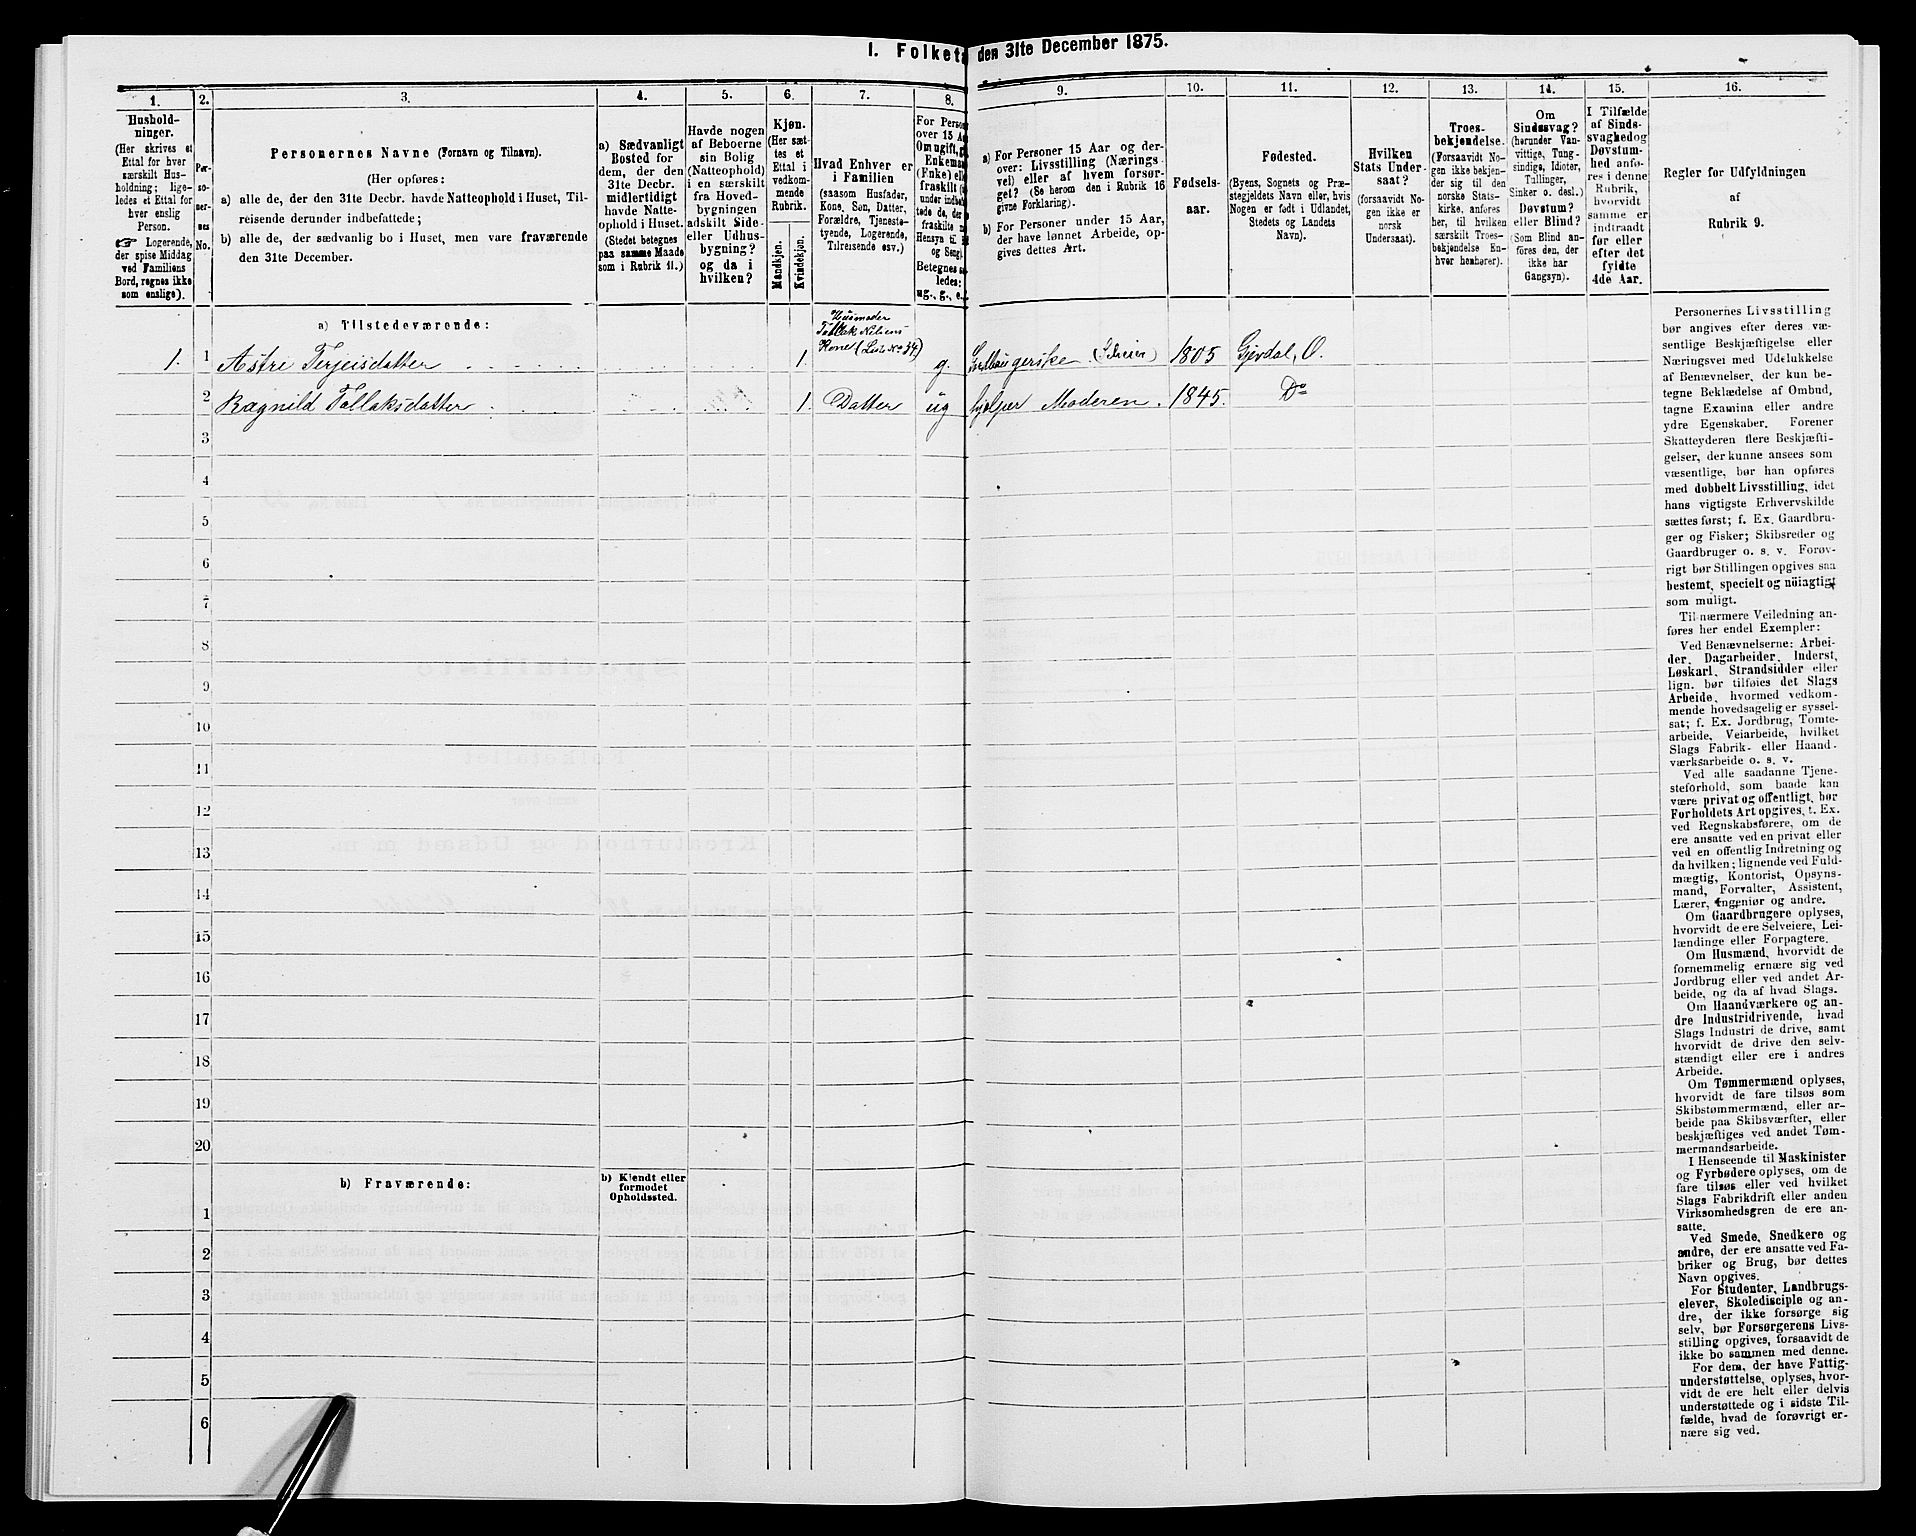 I. Folketa den 31te December 1875.
1.
Hushold-
ninger.
(Her skrives et
Ettal for hver
særskilt Hus-
holdning; lige-
ledes et Ettal for
hver enslig
Person.
Logerende,
der spise Middag
ved Familiens
Bord, regnes ikke
som enslige).
2.
Per-
so-
ner-
nes
No.
3.
Personernes Navne (Fornavn og Tilnavn).
(Her opføres:
a) alle de, der den 31te Decbr. havde Natteophold i Huset, Til-
reisende derunder indbefattede;
b) alle de, der sædvanlig bo i Huset, men vare fraværende
den 31te December.
4.
a) Sædvanligt
Bosted for
dem, der den
31te Decbr.
midlertidigt
havde Natte-
ophold i Huset.
(Stedet betegnes
paa samme Maade
som i Rubrik 11.)
5.
Havde nogen
af Beboerne
sin Bolig
(Natteophold)
i en særskilt
fra Hoved-
bygningen
adskilt Side-
eller Udhus-
bygning?
og da i
hvilken?
6.
Kjøn.
(Her sæt-
tes et
Ettal i
vedkom-
mende
Rubrik.
Mandkjøn.
Kvindekjøn.
7.
Hvad Enhver er
i Familien
(saasom Husfader,
Kone, Søn, Datter,
Forældre, Tjeneste-
tyende, Logerende,
Tilreisende osv.).
8.
For Person
over 15 A
Om ugift, g
Enkeman
(Enke) ell
fraskilt
under indb
tede de, der
fraskilte
Hensyn til
og Seng
Betegnes s
ledes:
ug., g., e.
9.
a) For Personer 15 Aar og der-
over: Livsstilling (Nærings-
vei) eller af hvem forsør-
get? (Se herom den i Rubrik 16
givne Forklaring).
b) For Personer under 15 Aar,
der have lønnet Arbeide, op-
gives dettes Art.
10.
Fødsels-
aar.
11.
Fødested.
(Byens, Sognets og Præ-
stegjeldets Navn eller, hvis
Nogen er født i Udlandet,
Stedets og Landets
Navn).
12.
Hvilken
Stats Under-
saat?
(forsaavidt No-
gen ikke er
norsk
Undersaat).
13.
Troes-
bekjendelse.
(Forsaavidt No-
gen ikke bekjen-
der sig til den
norske Stats-
kirke, anføres
her, til hvilken
særskilt Troes-
bekjendelse En-
hver henhører).
14.
Om
Sindssvag?
(herunder Van-
vittige, Tung-
sindige, Idioter,
Tullinger,
Sinker o. desl.)
Døvstum?
eller Blind?
(Som Blind an-
føres den, der
ikke har
Gangsyn).
15.
I Tilfælde
af Sinds-
svaghed og
Døvstum-
hed anfø-
res i denne
Rubrik,
hvorvidt
samme er
indtraadt
før eller
efter det
fyldte
4de Aar.
16.
Regler for Udfyldningen
af
Rubrik 9.
a) Tilstedeværende:
Husmoder
Tollak Nilsens
1. 1 Astri Terjeisdatter 1. Kone (Liste No 34) g. (Sleier) 1805 Gjerdal, O.
2 Ragnild Tollaksdatter 1. Datter ug hjelper Moderen. 1845. Do
3
4
5
6
7
8
9
10
11
12
13
14
15
16
17
18
19
20
b) Fraværende:
b) Kjendt eller
formodet
Opholdssted.
1
2
3
4
5
6
Personernes Livsstilling
bør angives efter deres væ-
sentlige Beskjæftigelse eller
Næringsvei med Udelukkelse
af Benævnelser, der kun be-
tegne Beklædelse af Ombud,
tagne Examina eller andre
ydre Egenskaber. Forener
Skatteyderen flere Beskjæfti-
gelser, der kunne ansees som
væsentlige, bør han opføres
med dobbelt Livsstilling, idet
hans vigtigste Erhvervskilde
sættes først; f. Ex. Gaardbru-
ger og Fisker; Skibsreder og
Gaardbruger o. s. v. Forøv-
rigt bør Stillingen opgives saa
bestemt, specielt og nöiagtigt
som muligt.
Til nærmere Veiledning an-
føres her endel Exempler:
Ved Benævnelserne: Arbei-
der, Dagarbeider, Inderst,
Løskarl, Strandsidder eller
lign. bør tilføies det Slags
Arbeide, hvormed vedkom-
mende hovedsagelig er syssel-
sat; f. Ex. Jordbrug, Tomte-
arbeide, Veiarbeide, hvilket
Slags Fabrik- eller Haand-
værksarbeide o. s. v.
Ved alle saadanne Tjene-
steforhold, som baade kan
være privat og offentligt, bør
Forholdets Art opgives, t. Ex.
ved Regnskabsførere, om de
ere ansatte ved en privat eller
ved en offentlig Indretning og
da hvilken; lignende ved Fuld-
mægtig, Kontorist, Opsyns-
mand, Forvalter, Assistent,
Lærer, Ingeniør og andre.
Om Gaardbrugere oplyses,
hvorvidt de ere Selveiere, Lei-
lændinge eller Forpagtere.
Om Husmænd, hvorvidt de
fornemmelig ernære sig ved
Jordbrug eller ved andet Ar-
beide, og da af hvad Slags.
Om Haandværkere og an-
dre Industridrivende, hvad
Slags Industri de drive, samt
hvorvidt de drive den selv-
stændigt eller ere i andres
Arbeide.
Om Tømmermænd oplyses,
hvorvidt de fare tilsøs som
Skibstømmermænd, eller ar-
beide paa Skibsværfter, eller
beskjæftiges ved andet Tøm-
mermandsarbeide.
I Henseende til Maskinister
og Fyrbødere oplyses, om de
fare tilsøs eller ved hvilket
Slags Fabrikdrift eller anden
Virksomhedsgren de ere an-
satte.
Ved Smede, Snedkere og
andre, der ere ansatte ved Fa-
briker og Brug, bør dettes
Navn opgives.
For Studenter, Landbrugs-
elever, Skoledisciple og an-
dre, der ikke forsørge sig
selv, bør Forsørgerens Livs-
stilling opgives, forsaavidt de
ikke bo sammen med denne.
For dem, der have Fattig-
understøttelse, oplyses, hvor-
vidt de ere helt eller delvis
understøttede og i sidste Til-
fælde, hvad de forøvrigt er-
nære sig ved.